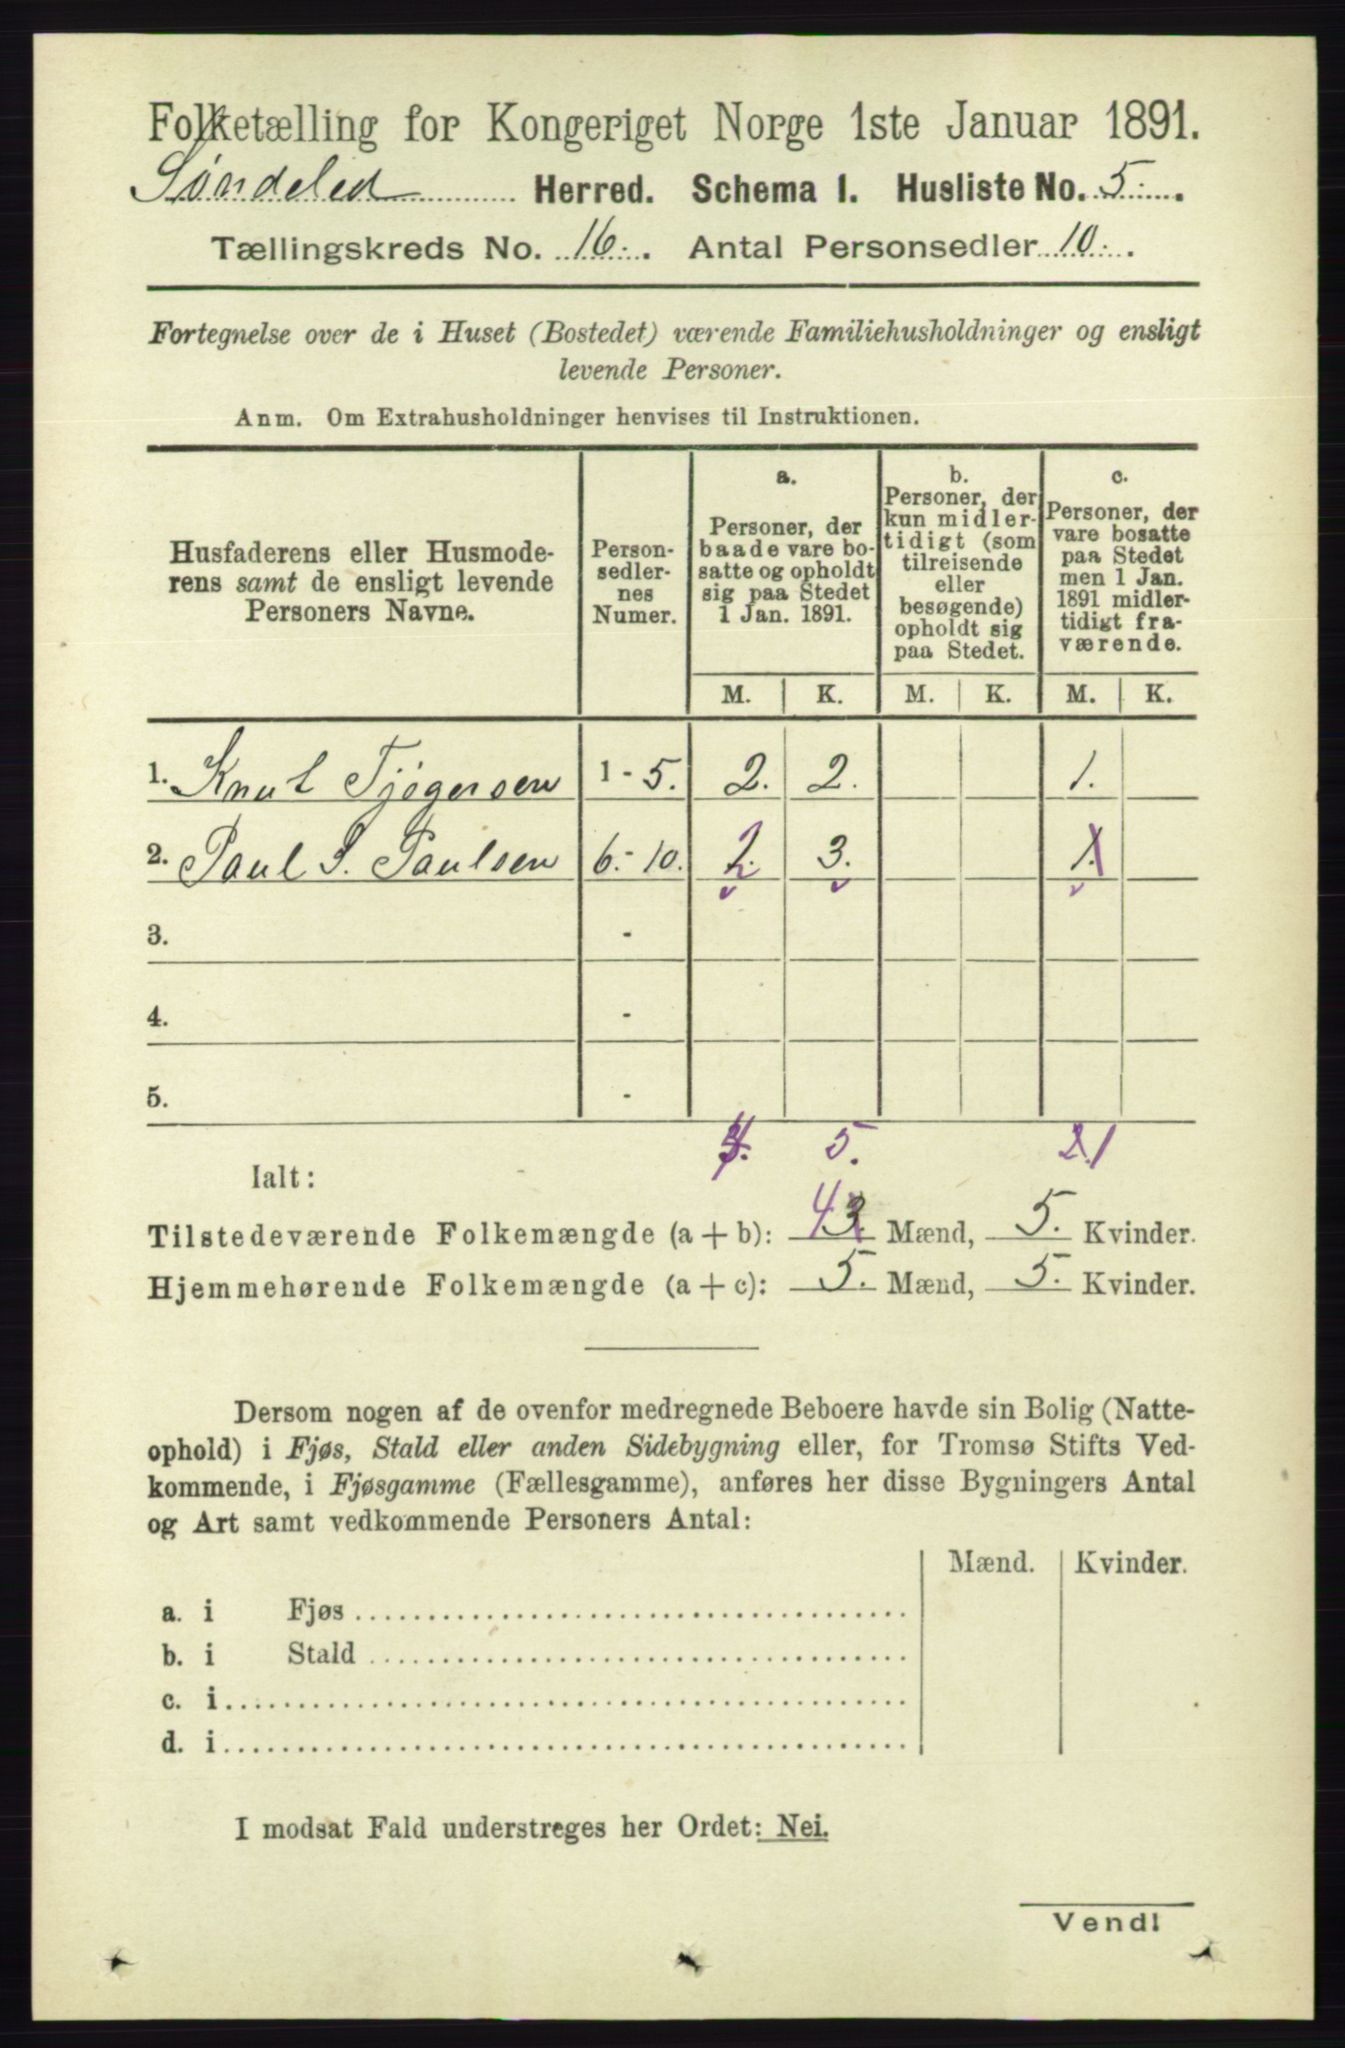 Folketælling for Kongeriget Norge 1ste Januar 1891.
Søndeled Herred. Schema 1. Husliste No. 5.
Tællingskreds No. 16. Antal Personsedler 10.
Fortegnelse over de i Huset (Bostedet) værende Familiehusholdninger og ensligt
levende Personer.
Anm. Om Extrahusholdninger henvises til Instruktionen.
Husfaderens eller Husmode-
rens samt de ensligt levende
Personers Navne.
Person-
sedler-
nes
Numer.
a.
Personer, der
baade vare bo-
satte og opholdt
sig paa Stedet
1 Jan. 1891.
b.
Personer, der
kun midler-
tidigt (som
tilreisende
eller
besøgende)
opholdt sig
paa Stedet.
c.
Personer, der
vare bosatte
paa Stedet
men 1 Jan.
1891 midler-
tidigt fra-
værende.
M. K. M. K. M. K.
1. Knut Tjøgersen 1 - 5. 2. 2. 1.
2. Paul S. Paulsen 6. - 10. 2. 3. 1.
3. -
4. -
5. -
4. 5. 2. 1
Ialt:
Tilstedeværende Folkemængde (a + b): 4 3. Mænd, 5. Kvinder.
Hjemmehørende Folkemængde (a + c): 5. Mænd, 5. Kvinder.
Dersom nogen af de ovenfor medregnede Beboere havde sin Bolig (Natte-
ophold) i Fjøs, Stald eller anden Sidebygning eller, for Tromsø Stifts Ved-
kommende, i Fjøsgamme (Fællesgamme), anføres her disse Bygningers Antal
og Art samt vedkommende Personers Antal:
Mænd. Kvinder.
a. i Fjøs
b. i Stald
c. i
d. i
I modsat Fald understreges her Ordet: Nei.
Vend!